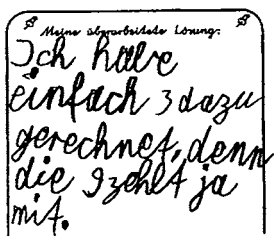 Meine überarbeitete Lösung:
Ich habe
einfach 3 dazu
gerechnet, denn
die 9 zehlt ja
mit.